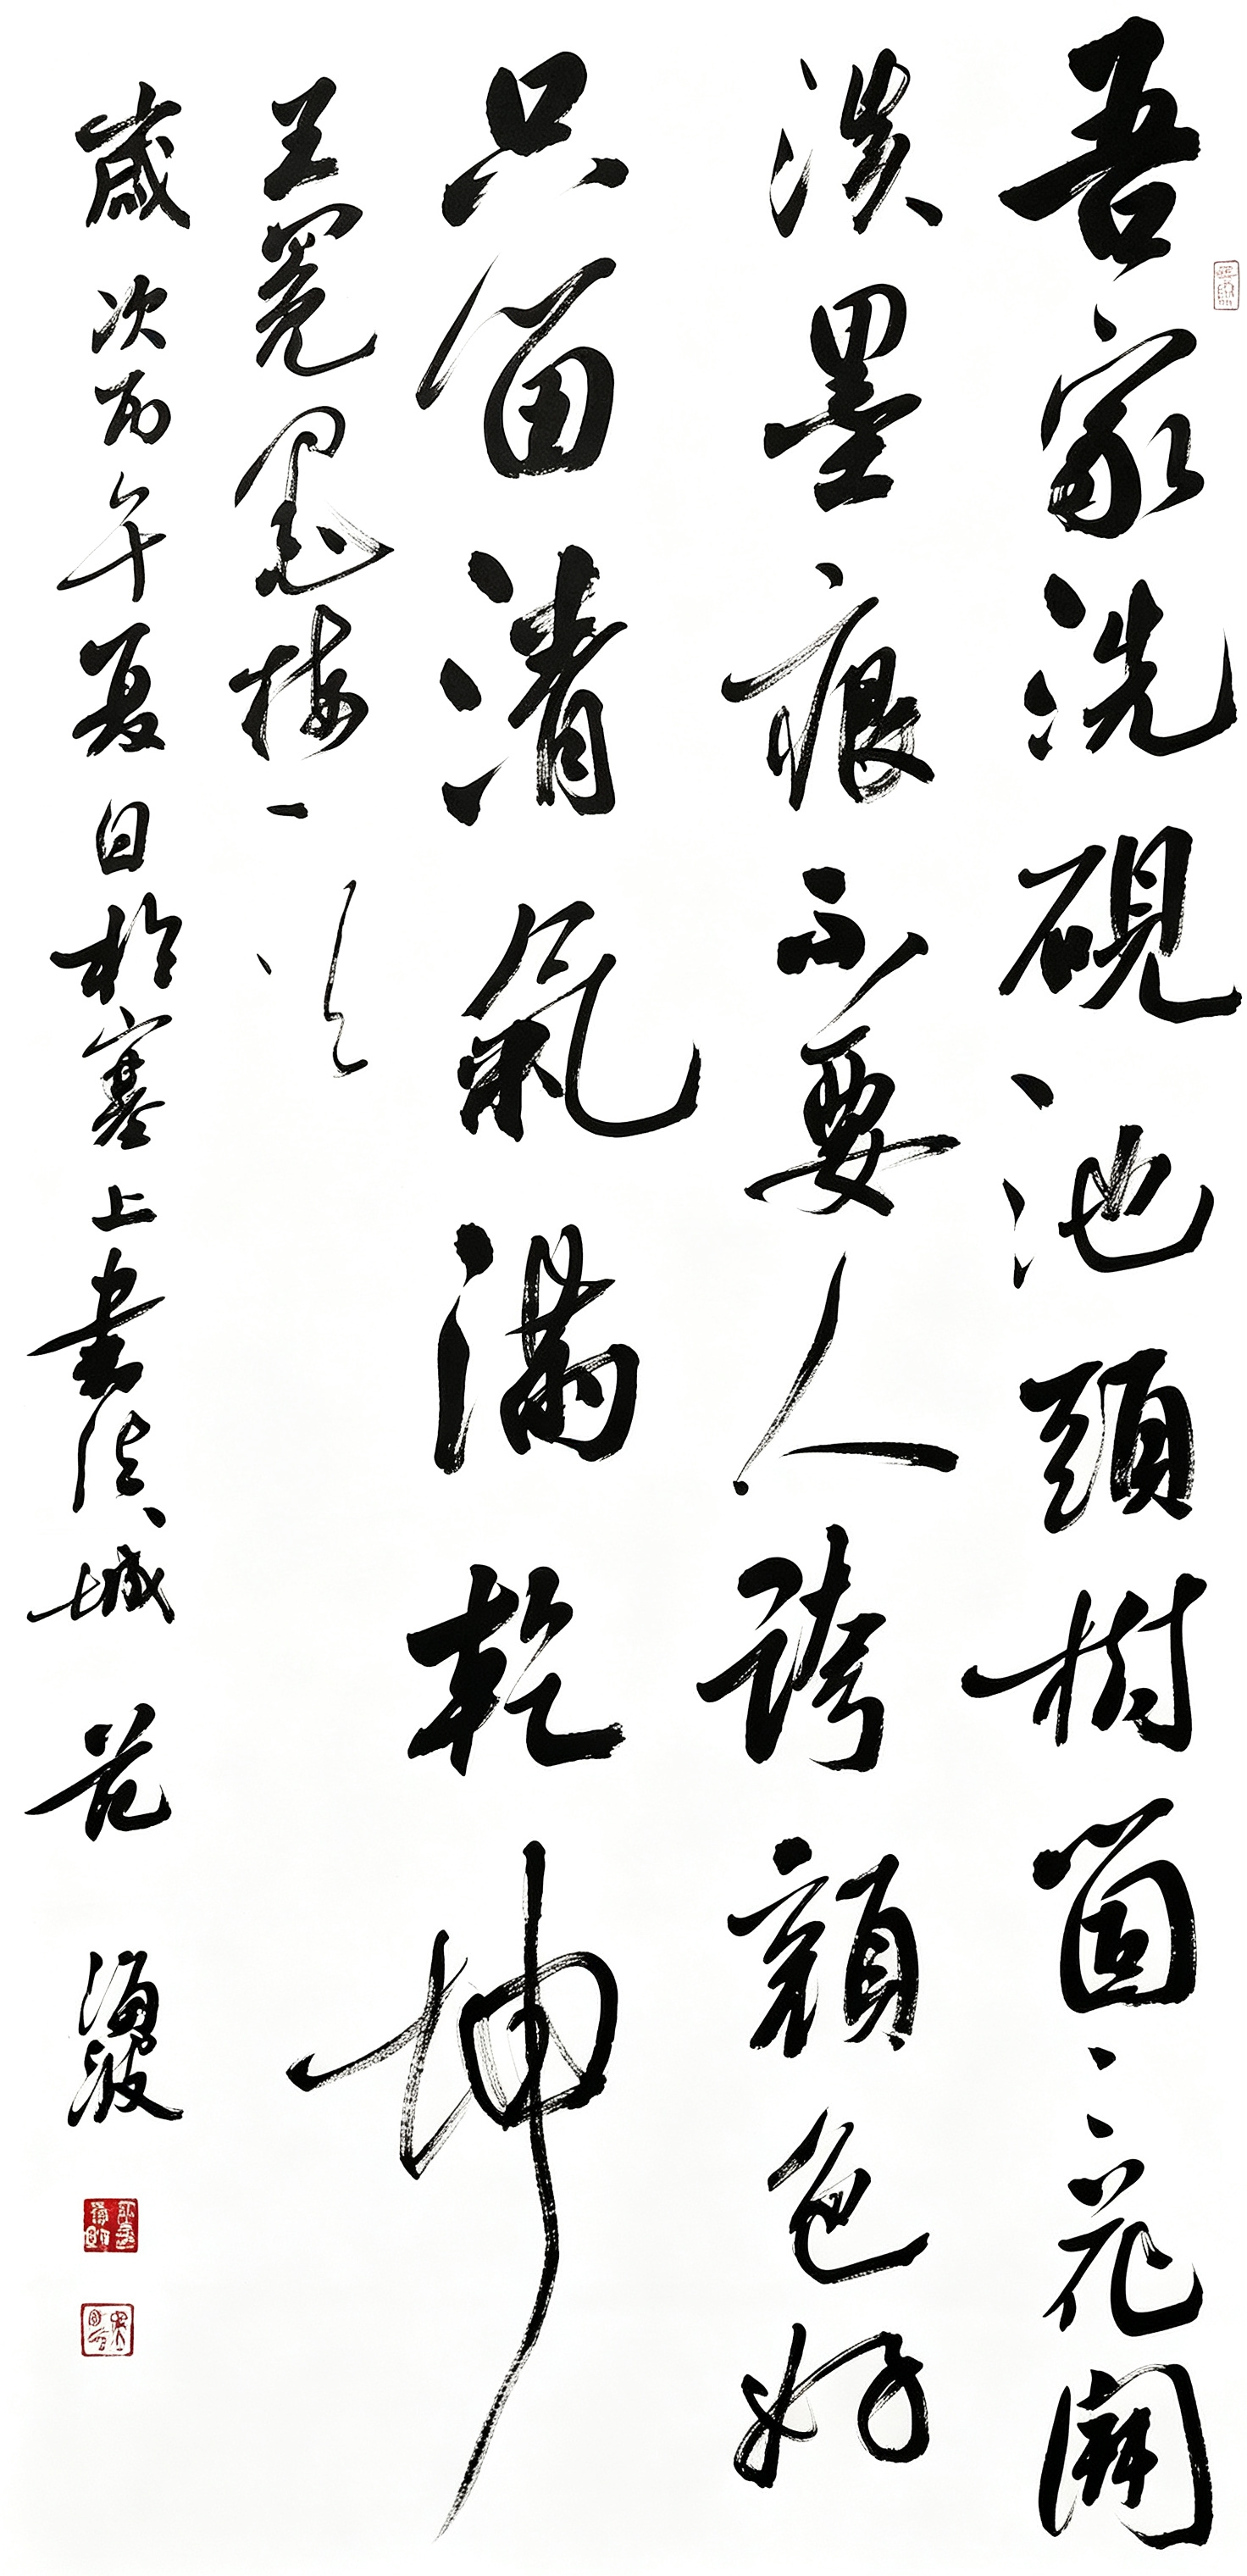 吾家洗硯池頭樹箇〻花開
淡墨痕不要人誇顔色好
只留清氣滿乾坤
王冕墨梅一首
歲次丙午夏日於塞上書法城范海波